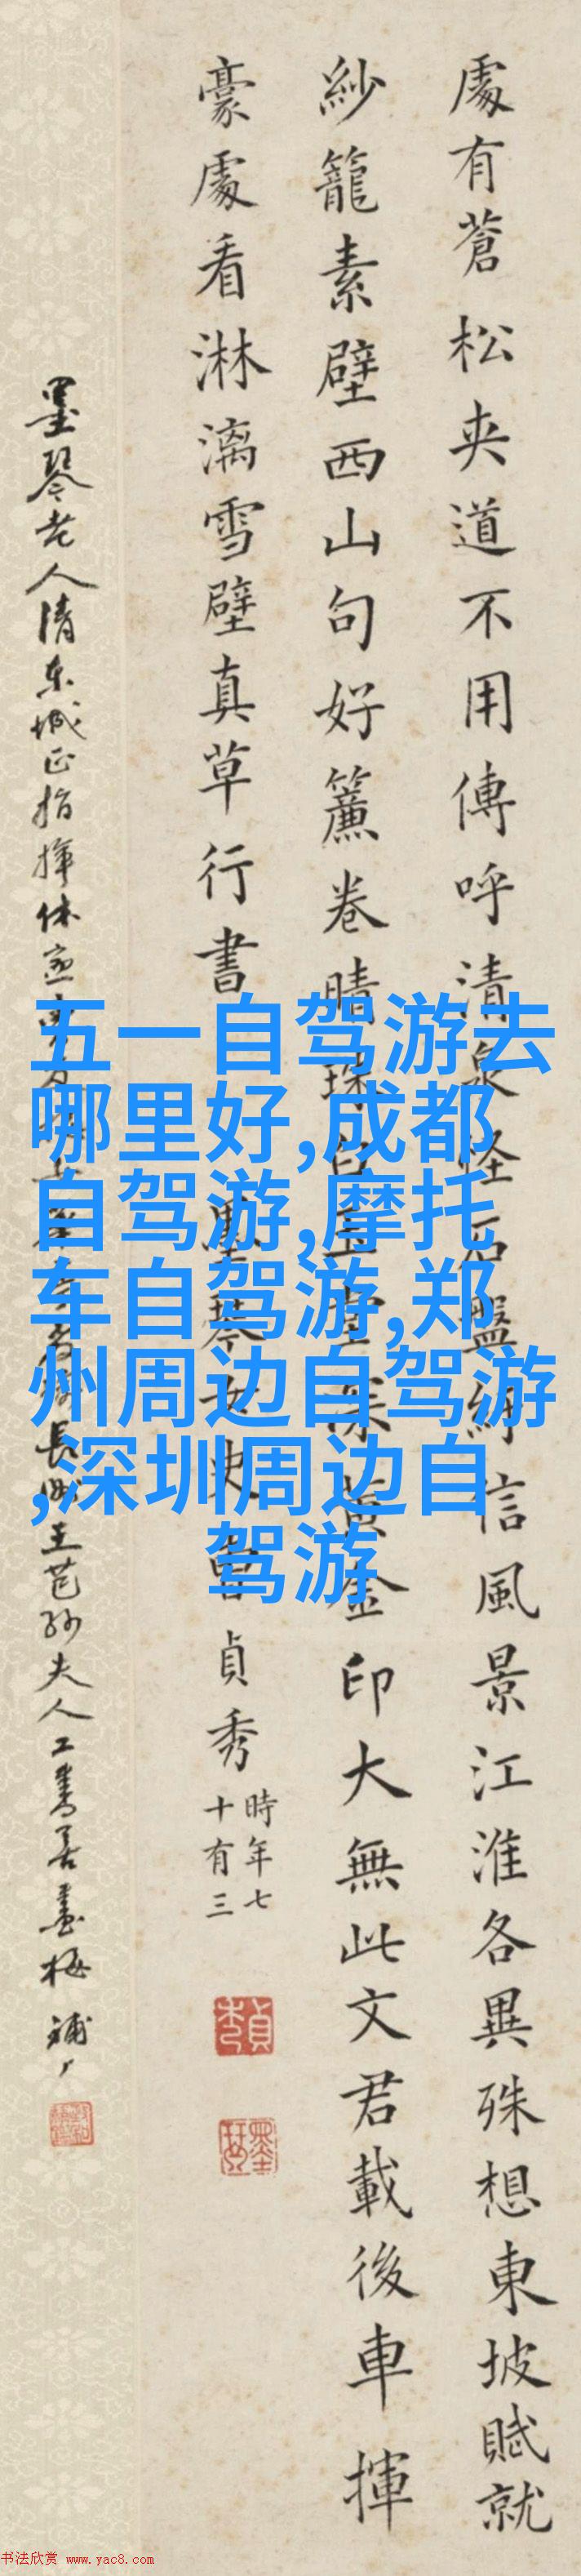 處有蒼松夾道不用傳呼清泉怪石盤紆信風景江淮各異殊想東坡賦就
紗籠素壁西山句好簾卷晴珠白玉堂深黃金印大無此文君載後車揮
豪處看淋漓雪壁真草行書
墨琴女史曹貞秀
時年七
十有三
貞秀
墨琴
墨琴老人清東城正指揮
長洲王芑孫夫人工書善畫梅
五一自驾游去
哪里好,成都
自驾游,摩托
车自驾游,郑
州周边自驾游
,深圳周边自
驾游
书法欣赏 www.yac8.com